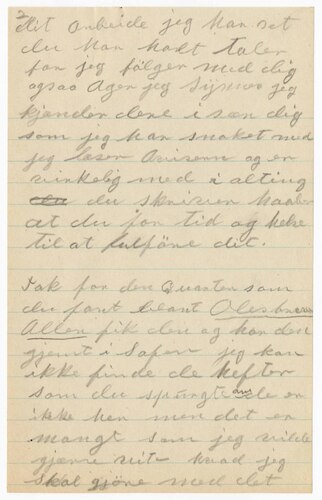 2
dit arbeide jeg har set
du har hat taler
for jeg fölger med dig
ogsaa Ager jeg Synes jeg
kjender dere i sær dig
som jeg har snaket med
jeg læser Avisenn og er
virkelig med i alting
du skriver haaber
at du for tid og helse
til at fulföre dit.
Tak for den som
du faret blant
Allen fik den og har den
gjemt i Safen jeg kan
ikke finde de hefter
som du spurgte om de er
ikke her men det er
mangt som jeg vilde
gjærne vit hvad jeg
skal gjöre med det